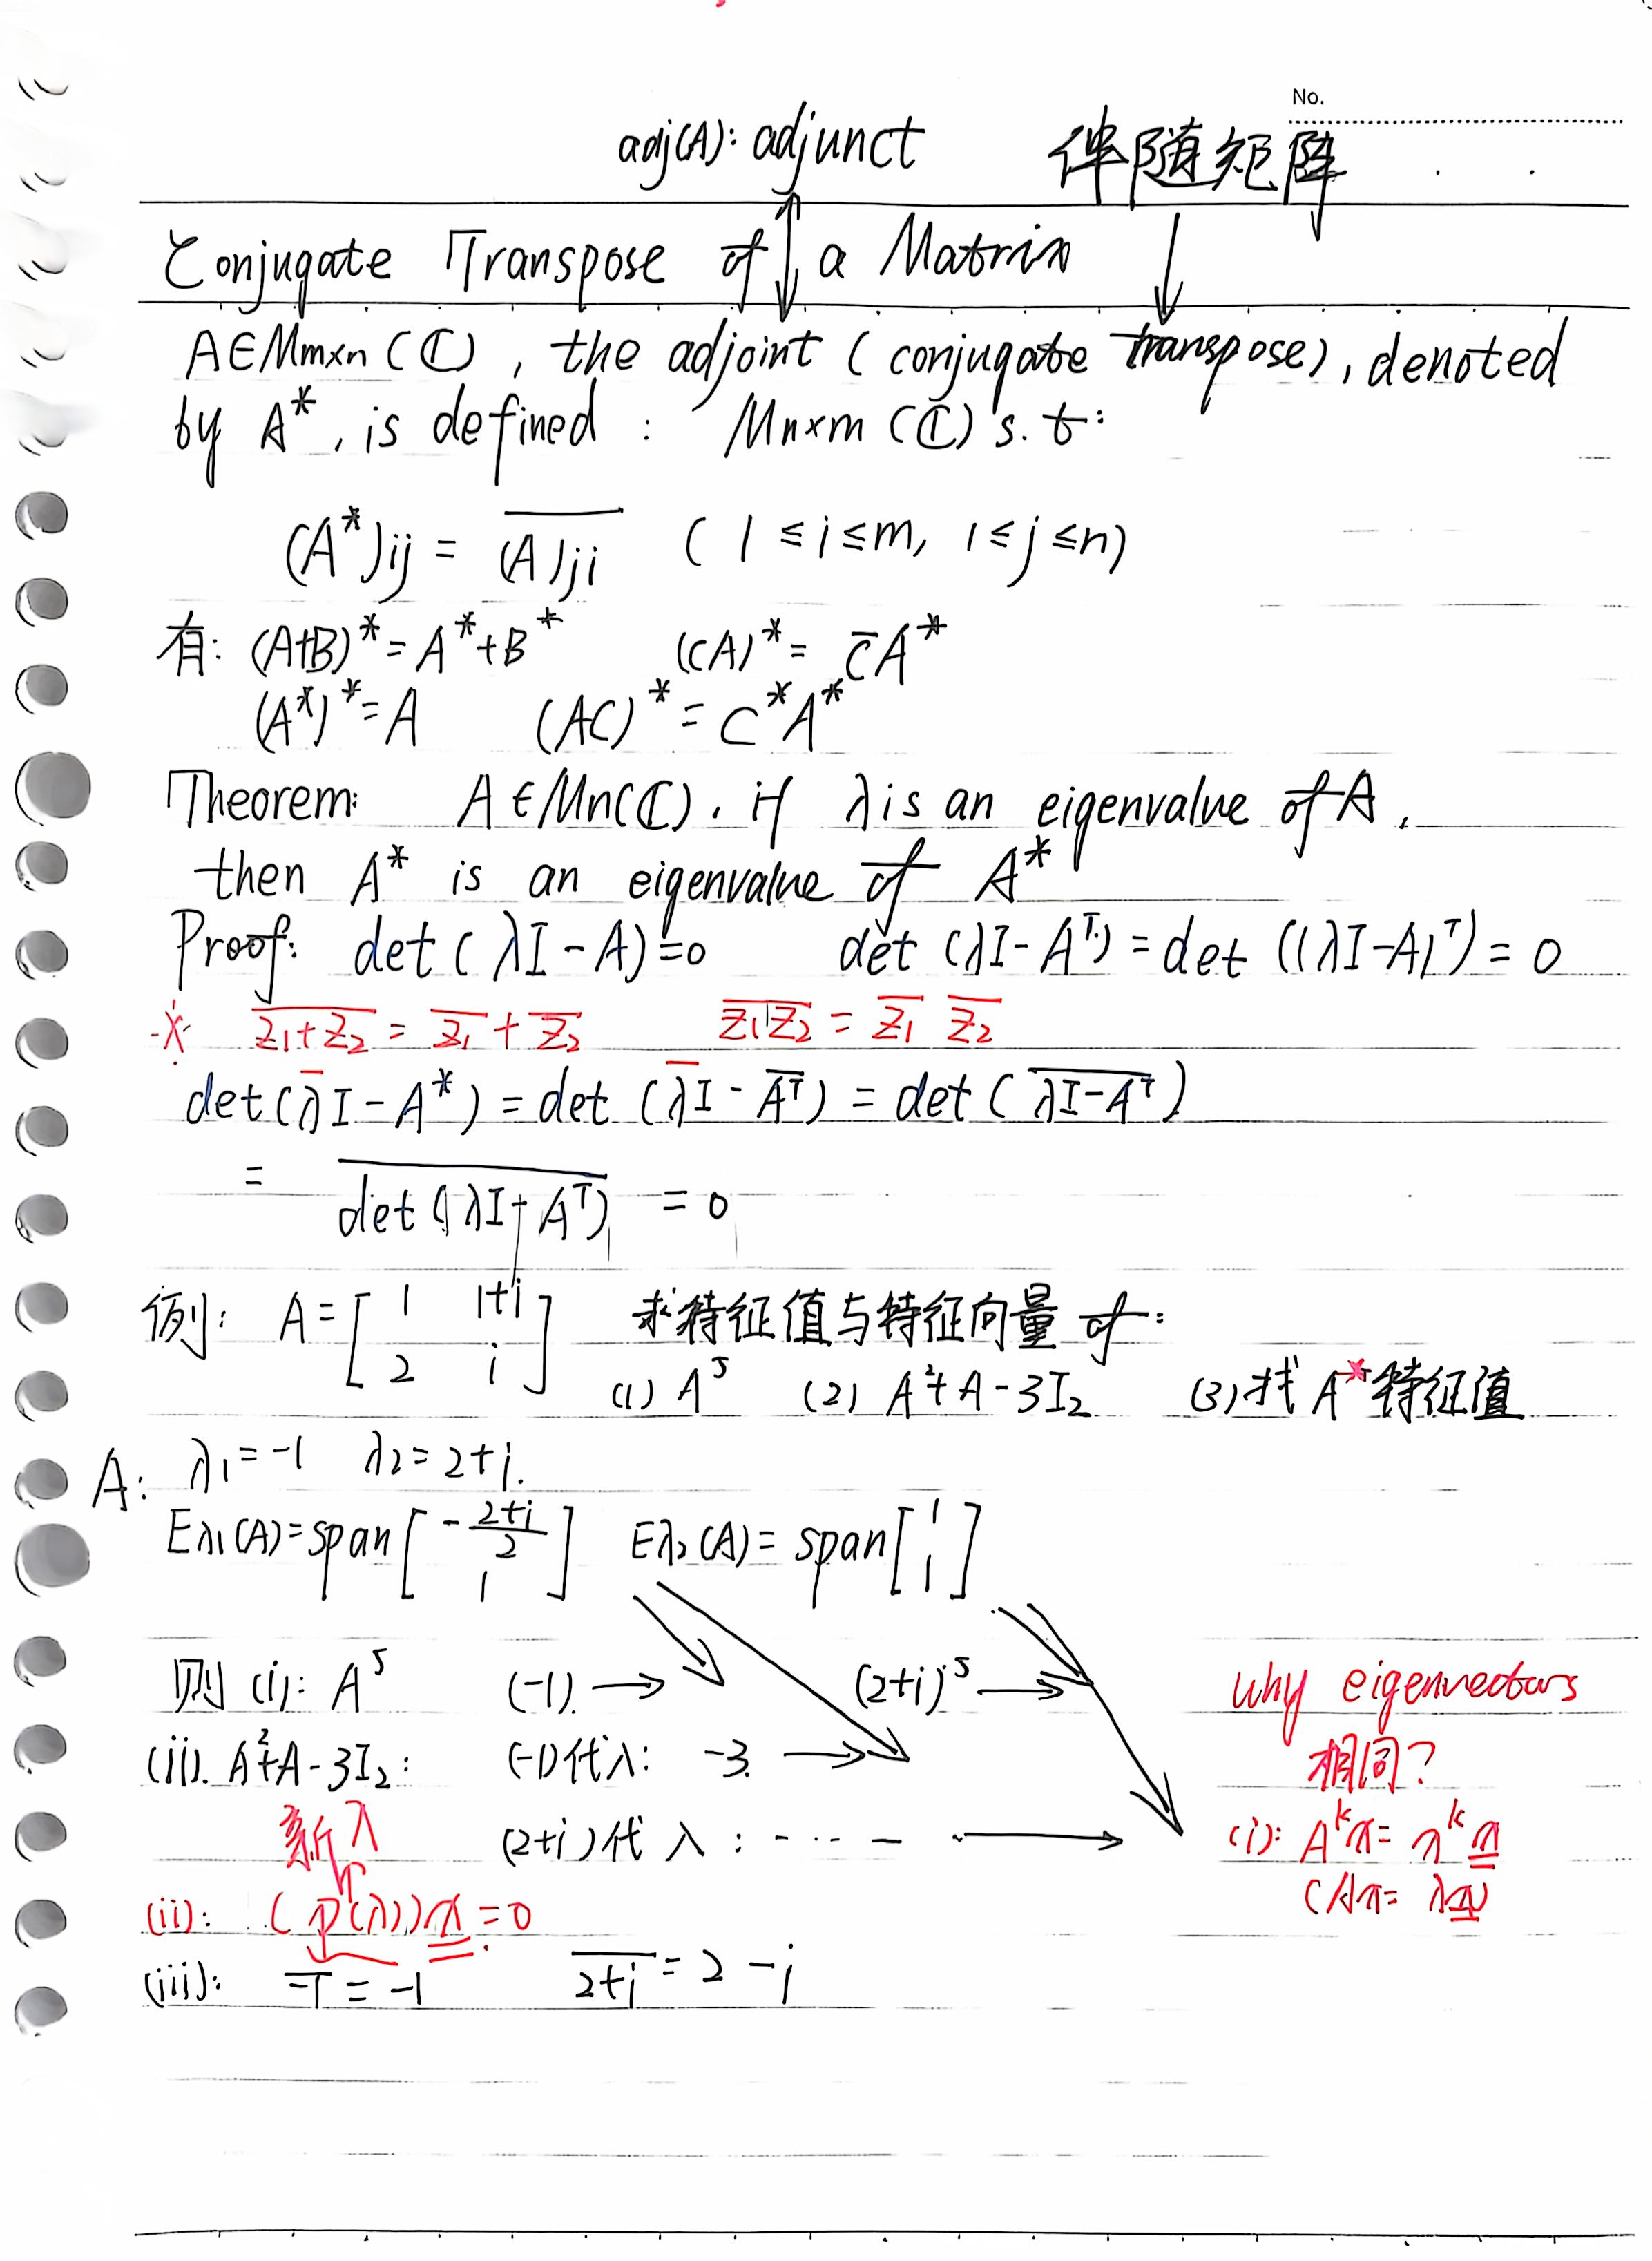 No.
adj(A): adjunct 伴随矩阵
Conjugate Transpose of a Matrix
A∈Mm×n (ℂ), the adjoint (conjugate transpose), denoted
by A*, is defined : Mn×m (ℂ) s.t:
(A*)ij = \overline{(A)ji} (1 ≤ i ≤ m, 1 ≤ j ≤ n)
有: (A+B)* = A* + B* (cA)* = \overline{c}A*
(A*)* = A (AC)* = C*A*
Theorem: A∈Mn(ℂ). if λ is an eigenvalue of A,
then A* is an eigenvalue of A*
Proof: det(λI-A)=0 det(λI-A^T) = det((λI-A)^T) = 0
※ \overline{z₁+z₂} = \overline{z₁} + \overline{z₂} \overline{z₁z₂} = \overline{z₁} \overline{z₂}
det(\overline{λ}I-A*) = det(\overline{λ}I-\overline{A^T}) = det(\overline{λI-A^T})
= \overline{det(λI-A^T)} = 0
例: A = [1 1+i; 2 i] 求特征值与特征向量 of:
(1) A⁵ (2) A²+A-3I₂ (3) 找 A* 特征值
A: λ₁=-1 λ₂=2+i.
Eλ₁(A)=span[-\frac{2+i}{2}; 1] Eλ₂(A)=span[1; 1]
则 (i): A⁵ (-1) → (2+i)⁵ →
why eigenvectors
(ii). A²+A-3I₂: (-1)代入: -3. →
相同?
新λ (2+i)代入: ---- →
(i): A^k x = λ^k x
(Ax = λx)
(ii): (P(λ))x = 0
(iii): \overline{-1} = -1 \overline{2+i} = 2-i